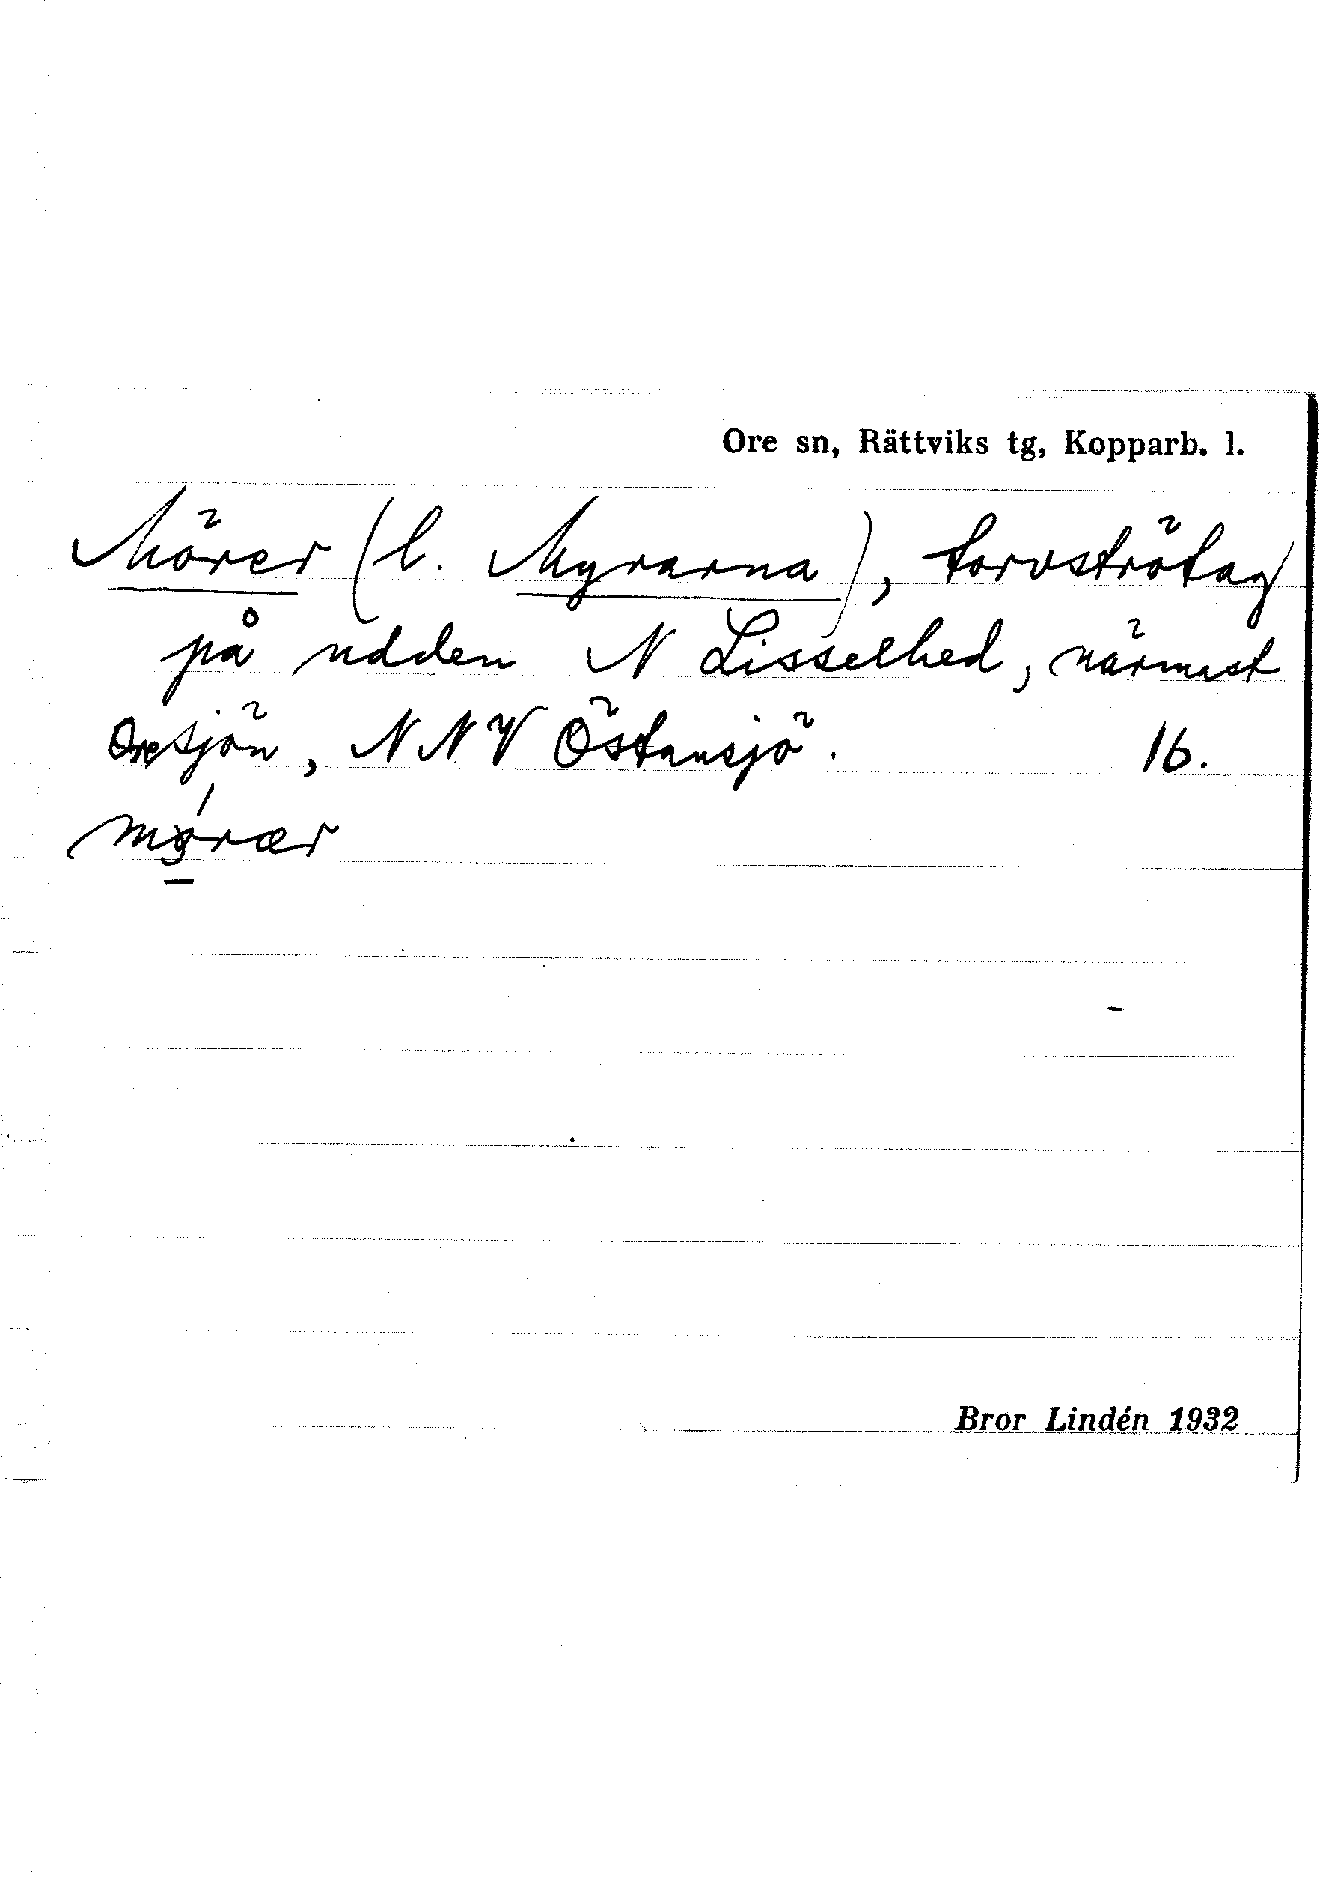 Ore sn, Rättviks tg, Kopparb. l.
Mörer (l. Myrarna), torvströtag
på udden N Lisselhed, närmast
Oresjön, NNV Östansjö. 16.
Bror Lindén 1932